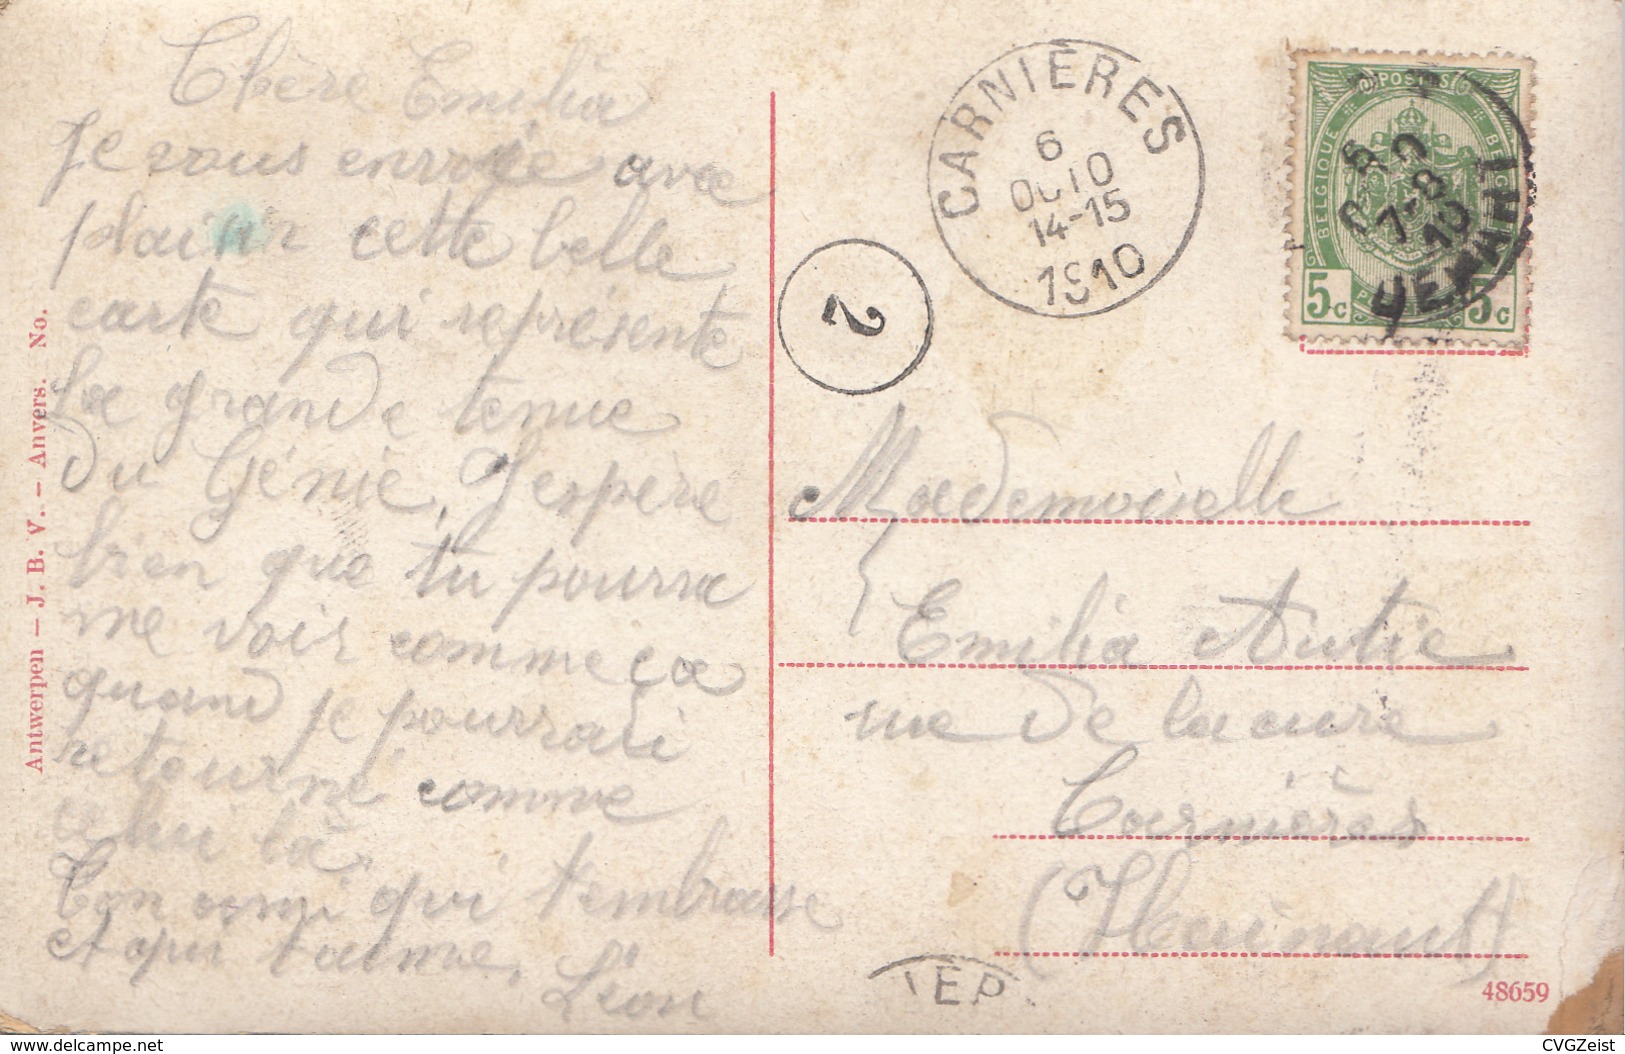 Chère Emilia
Je vous envoie avec
plaisir cette belle
carte qui représente
La grande tenue
du Génie, J'espère
bien que tu pourra
me voir comme ça
quand je pourrai
retourné comme
celui là.
Ton ami qui t'embrasse
et qui t'aime.
Léon
Antwerpen — J. B. V. — Anvers. No.
CARNIÈRES
6
OCTO
14-15
1910
2
POSTES
BELGIQUE
5c 5c
7-8
10
JEMAPPES
Mademoiselle
Emilia Autie
rue de la cure
Carnières
(Hainaut)
48659
CVGZeist